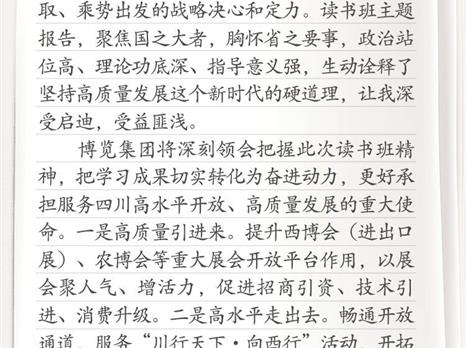 取、乘势出发的战略决心和定力。读书班主题
报告，聚焦国之大者，胸怀省之要事，政治站
位高、理论功底深、指导意义强，生动诠释了
坚持高质量发展这个新时代的硬道理，让我深
受启迪，受益匪浅。
博览集团将深刻领会把握此次读书班精
神，把学习成果切实转化为奋进动力，更好承
担服务四川高水平开放、高质量发展的重大使
命。一是高质量引进来。提升西博会（进出口
展）、农博会等重大展会开放平台作用，以展
会聚人气、增活力，促进招商引资、技术引
进、消费升级。二是高水平走出去。畅通开放
通道，服务“川行天下·向西行”活动，开拓